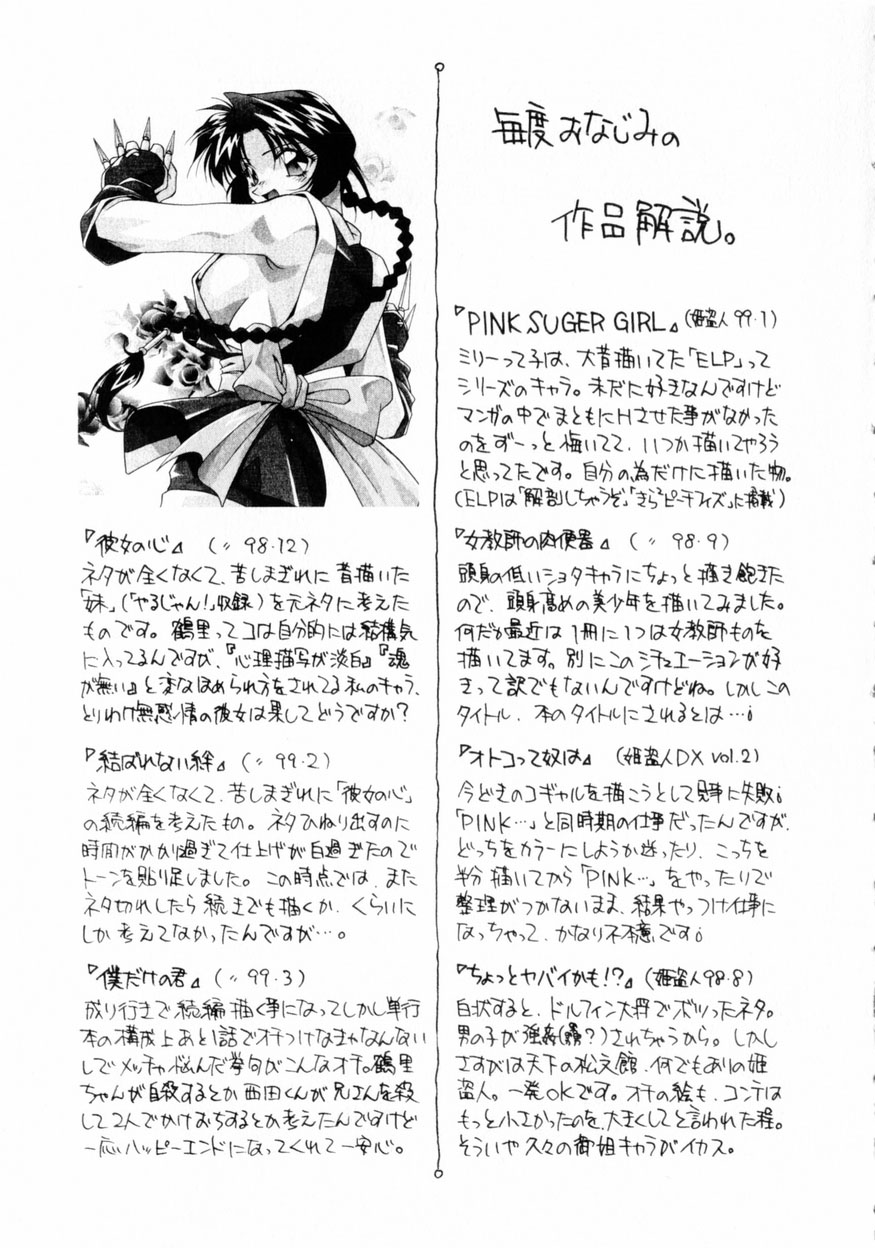 毎度おなじみの
作品解説。
『PINK SUGER GIRL』(姫盗人99・1)
ミリーって子は、大昔描いてた「ELP」って
シリーズのキャラ。未だに好きなんですけど
マンガの中でまともにHさせた事がなかった
のをずーっと悔いてて、いつか描いてやろう
と思ってたです。自分の為だけに描いた物。
(ELPは「解剖しちゃうぞ」「きら²ピーチフィズ」に掲載)
『女教師の肉便器』(〃 98・9)
頭身の低いショタキャラにちょっと描き飽きた
ので、頭身高めの美少年を描いてみました。
何だか最近は1冊に1つは女教師ものを
描いてます。別にこのシチュエーションが好
きって訳でもないんですけどね。しかしこの
タイトル、本のタイトルにされるとは…;
『オトコって奴は』(姫盗人DX vol.2)
今どきのコギャルを描こうとして見事に失敗;
「PINK…」と同時期の仕事だったんですが、
どっちをカラーにしようか迷ったり、こっちを
半分描いてから「PINK…」をやったりで
整理がつかないまま、結果やっつけ仕事に
なっちゃって、かなり不本意です;
『ちょっとヤバイかも!?』(姫盗人98・8)
白状すると、ドルフィン大将でボツったネタ。
男の子が強姦(?)されちゃうから。しかし
さすがは天下の松文館、何でもありの姫
盗人。一発OKです。オチの絵も、コンテは
もっと小さかったのを、大きくしてと言われた程。
そういや久々の御姐キャラがイカス。
『彼女の心』(〃 98・12)
ネタが全くなくて、苦しまぎれに昔描いた
「妹」(「やるじゃん!」収録)を元ネタに考えた
ものです。鶴里ってコは自分的には結構気
に入ってるんですが、『心理描写が淡白』『魂
が無い』と変なほめられ方をされてる私のキャラ、
とりわけ無感情の彼女は果してどうですか?
『結ばれない絆』(〃 99・2)
ネタが全くなくて、苦しまぎれに「彼女の心」
の続編を考えたもの。ネタひねり出すのに
時間がかかり過ぎて仕上げが白過ぎたので
トーンを貼り足しました。この時点では、また
ネタ切れしたら続きでも描くか、くらいに
しか考えてなかったんですが…。
『僕だけの君』(〃 99・3)
成り行きで続編描く事になってしかし単行
本の構成上あと1話でオチつけなきゃなんない
しでメッチャ悩んだ挙句がこんなオチ。鶴里
ちゃんが自殺するとか西田くんが兄さんを殺
して2人でかけおちするとか考えたんですけど
一応ハッピーエンドになってくれて一安心。